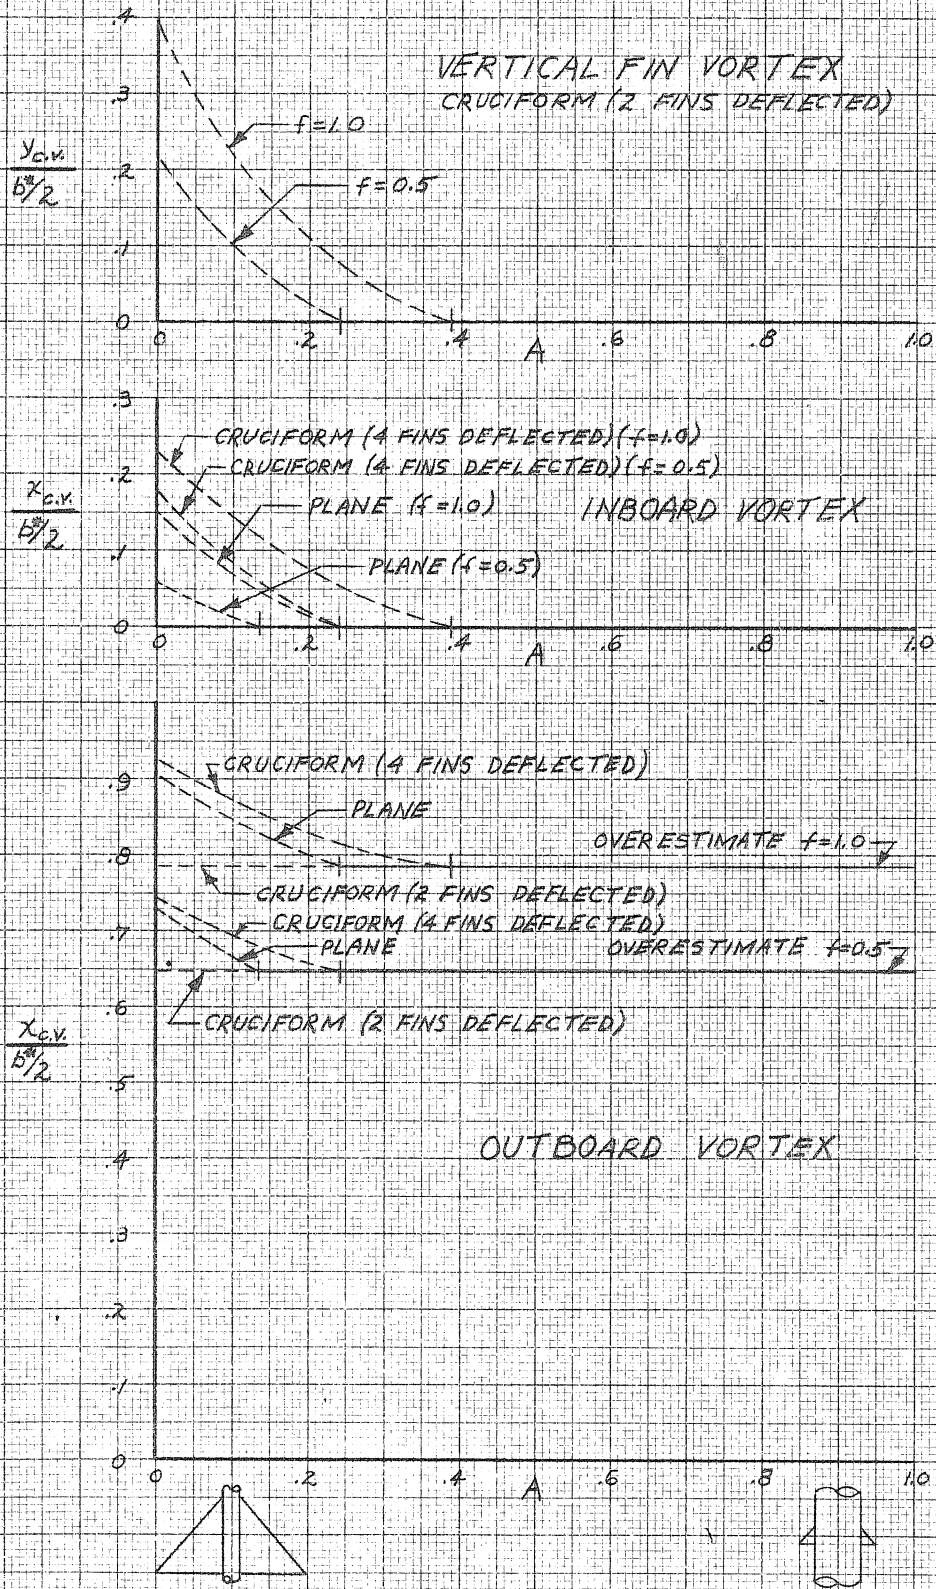 VERTICAL FIN VORTEX
CRUCIFORM (2 FINS DEFLECTED)
.4
.3
.2
.1
0
y c.v.
b*/2
f=1.0
f=0.5
0 .2 .4 A .6 .8 1.0
.3
.2
.1
0
x c.v.
b*/2
CRUCIFORM (4 FINS DEFLECTED) (f=1.0)
CRUCIFORM (4 FINS DEFLECTED) (f=0.5)
PLANE (f=1.0)
INBOARD VORTEX
PLANE (f=0.5)
0 .2 .4 A .6 .8 1.0
.9
.8
.7
.6
.5
.4
.3
.2
.1
0
x c.v.
b*/2
CRUCIFORM (4 FINS DEFLECTED)
PLANE
OVERESTIMATE f=1.0
CRUCIFORM (2 FINS DEFLECTED)
CRUCIFORM (4 FINS DEFLECTED)
PLANE
OVERESTIMATE f=0.5
CRUCIFORM (2 FINS DEFLECTED)
OUTBOARD VORTEX
0 .2 .4 A .6 .8 1.0